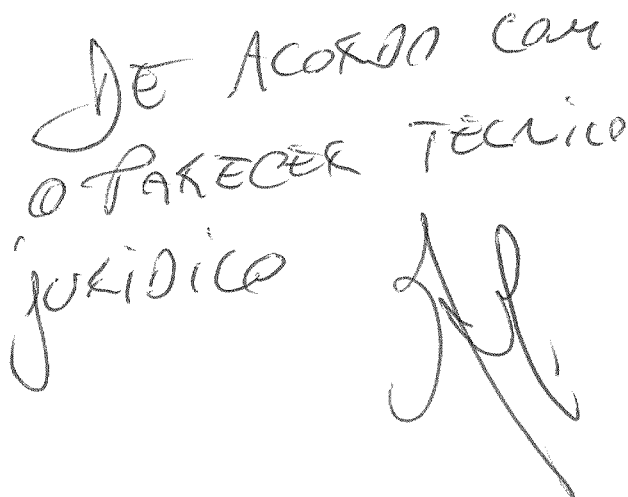 DE ACORDO com
O PARECER TÉCNICO
JURÍDICO